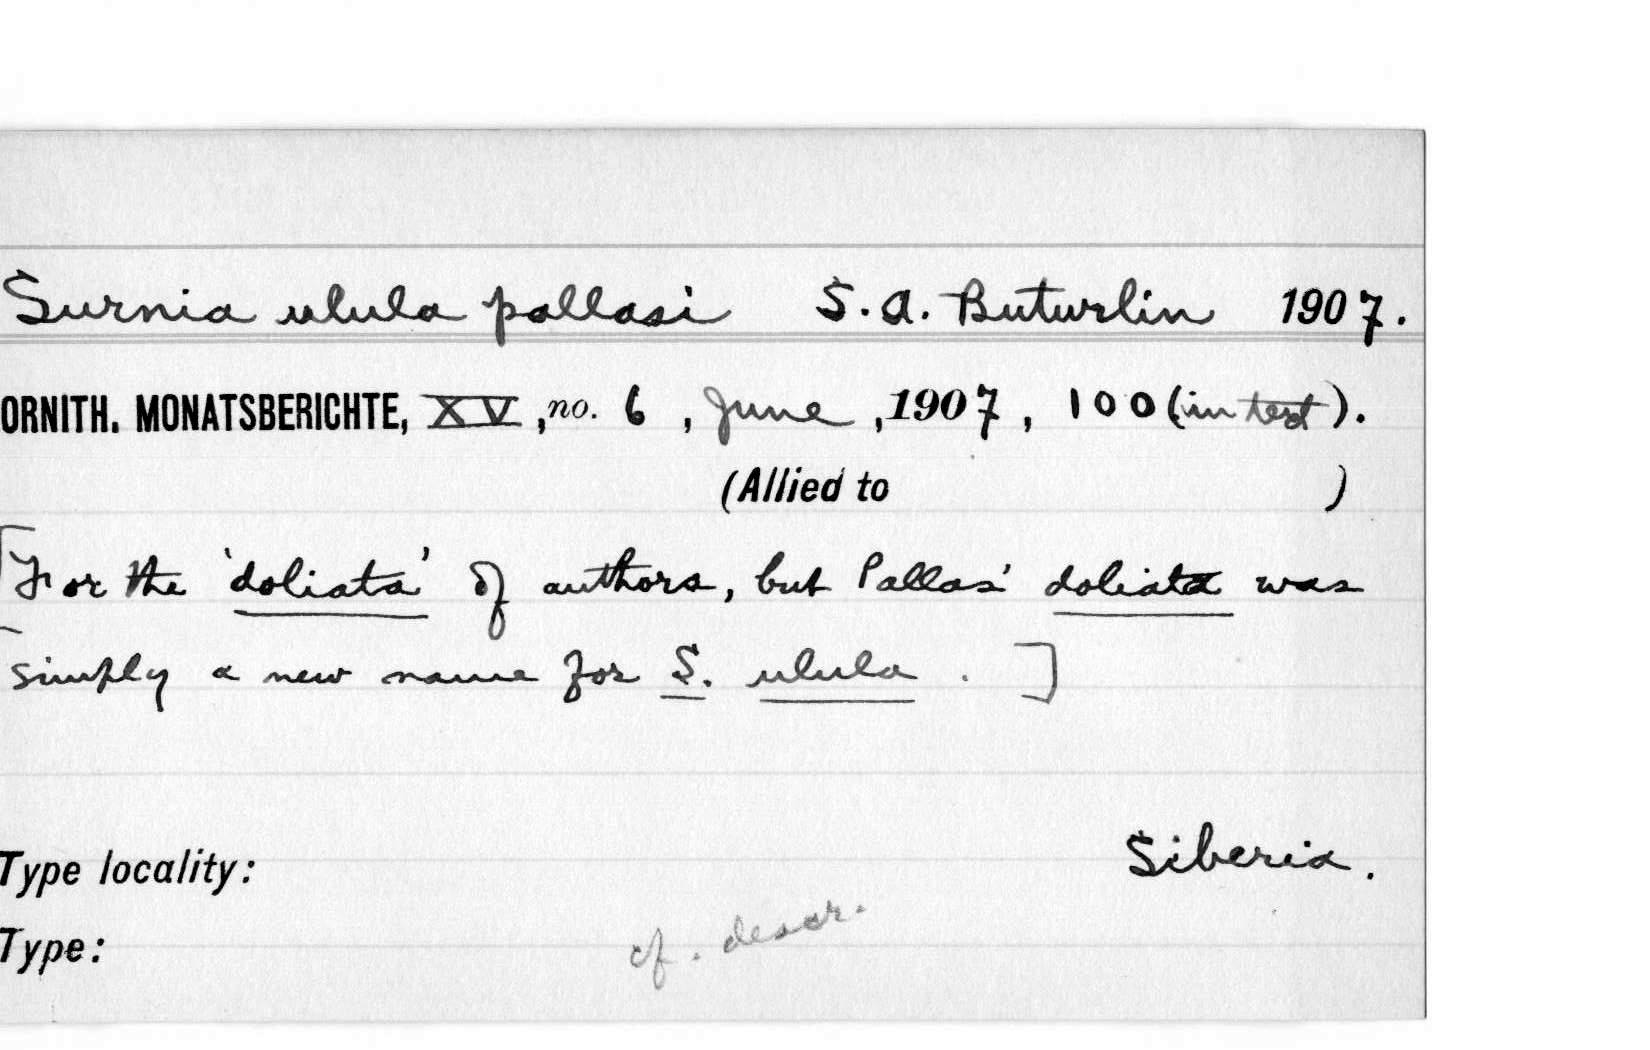 Surnia ulula pallasi S. A. Buturlin 1907.
ORNITH. MONATSBERICHTE, XV, no. 6, June, 1907, 100 (in text).
(Allied to )
[For the 'doliata' of authors, but Pallas' doliata was
simply a new name for S. ulula. ]
Type locality: Siberia.
Type:
cf. descr.